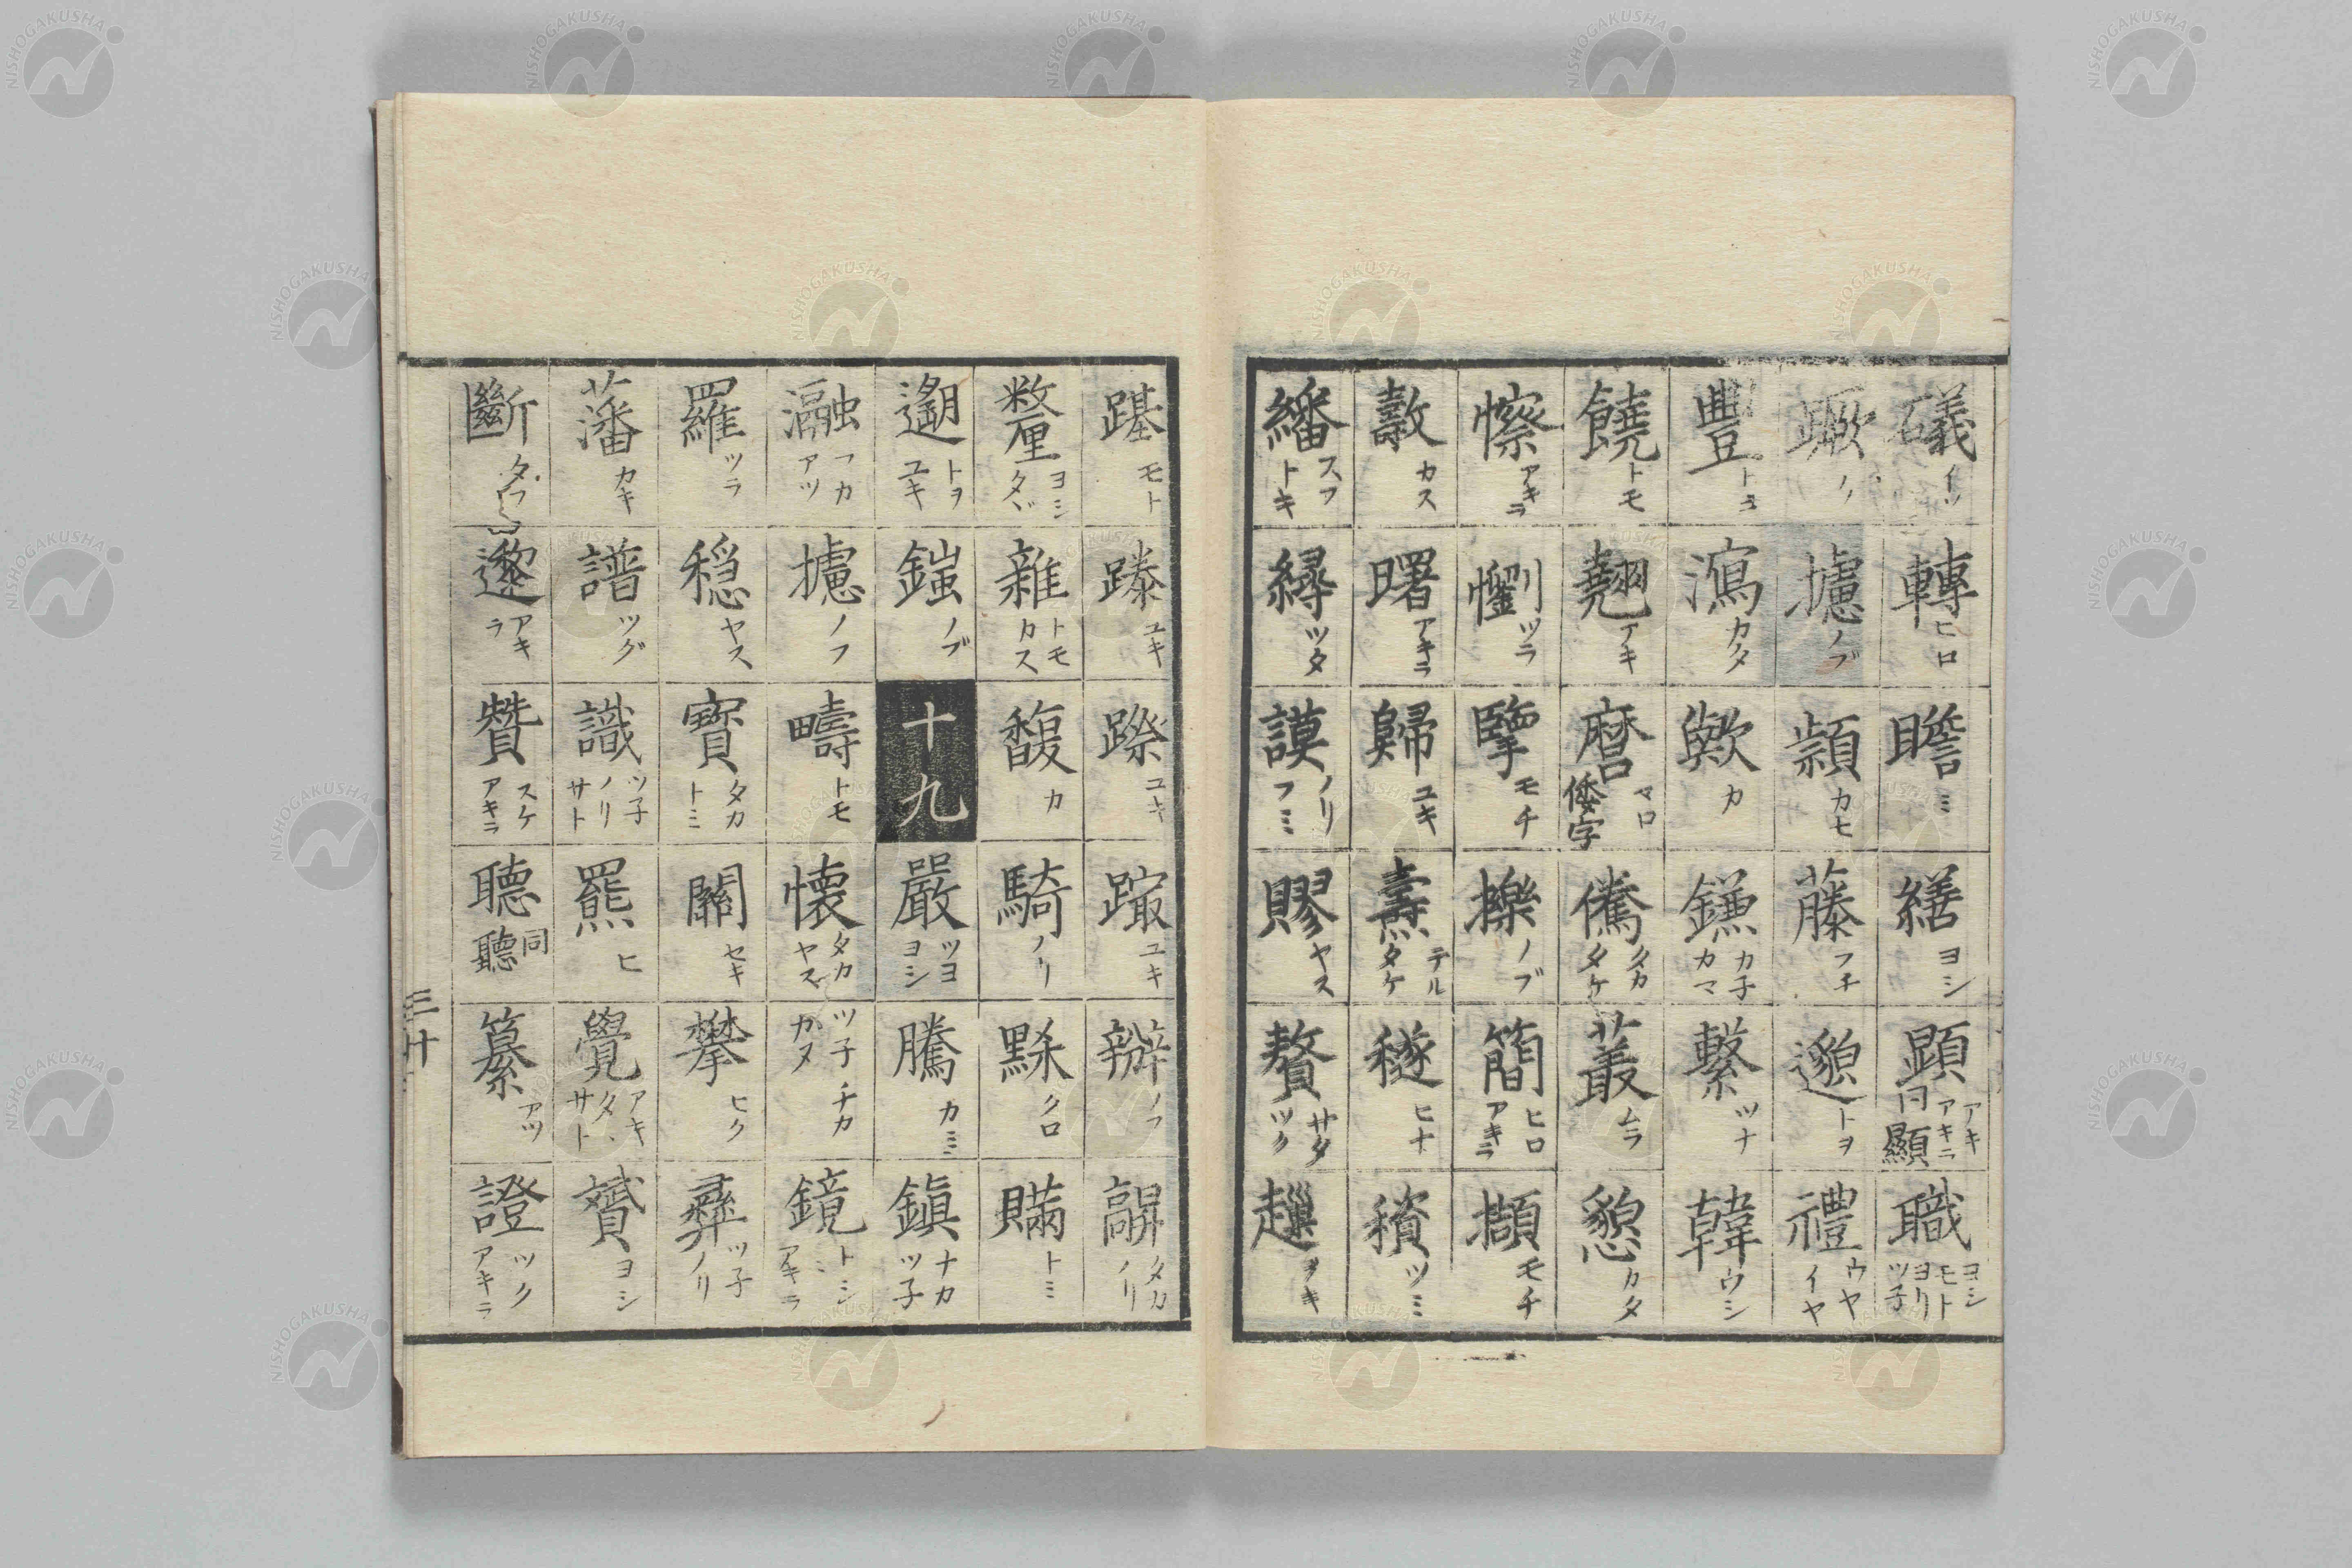 礒
轉 ヒロ
瞻 ミ
繕 ヨシ
顕 アキ アキラ 同 顯
職 ヨシ モト ヨリ ツ子
蹶
攄 ノブ
頴 カヒ
藤 フチ
邈 トヲ
禮 ウヤ イヤ
豐 トヨ
瀉 カタ
歟 カ
鎌 カ子 カマ
繋 ツナ
韓 ウシ
饒 トモ
翹 アキ
麿 マロ 倭字
儁 タカ タケ
叢 ムラ
懇 カタ
憏 アキラ
懰 ツラ
擥 モチ
擽 ノブ
簡 ヒロ アキラ
擷 モチ
敼 カス
曙 アキラ
歸 ユキ
燾 テル タケ
穟 ヒナ
積 ツミ
繙 スフ トキ
繜 ツタ
謨 ノリ フミ
賿 ヤス
贅 サタ ツク
ヲキ
踑 モト
ユキ
ユキ
ユキ
辧 ノフ
タカ ノリ
釐 ヨシ タヾ
雑 トモ カス
馥 カ
騎 ノリ
クロ
トミ
トヲ ユキ
ノブ
十九
嚴 ツヨ ヨシ
騰 カミ
鎭 ナカ ツ子
瀜 フカ アツ
攄 ノフ
疇 トモ
懐 タカ ヤス
ツ子 チカ カヌ
鏡 トシ ミ アキラ
羅 ツラ
穏 ヤス
寳 タカ トミ
關 セキ
攀 ヒク
彝 ツ子 ノリ
藩 カキ
譜 ツグ
識 ツ子 ノリ サト
羆 ヒ
覺 アキ タヽ サト
贇 ヨシ
斷
アキラ
贊 スケ アキラ
聴 同 聽
纂 アツ
證 ツク アキラ
三十
NISHOGAKUSHA